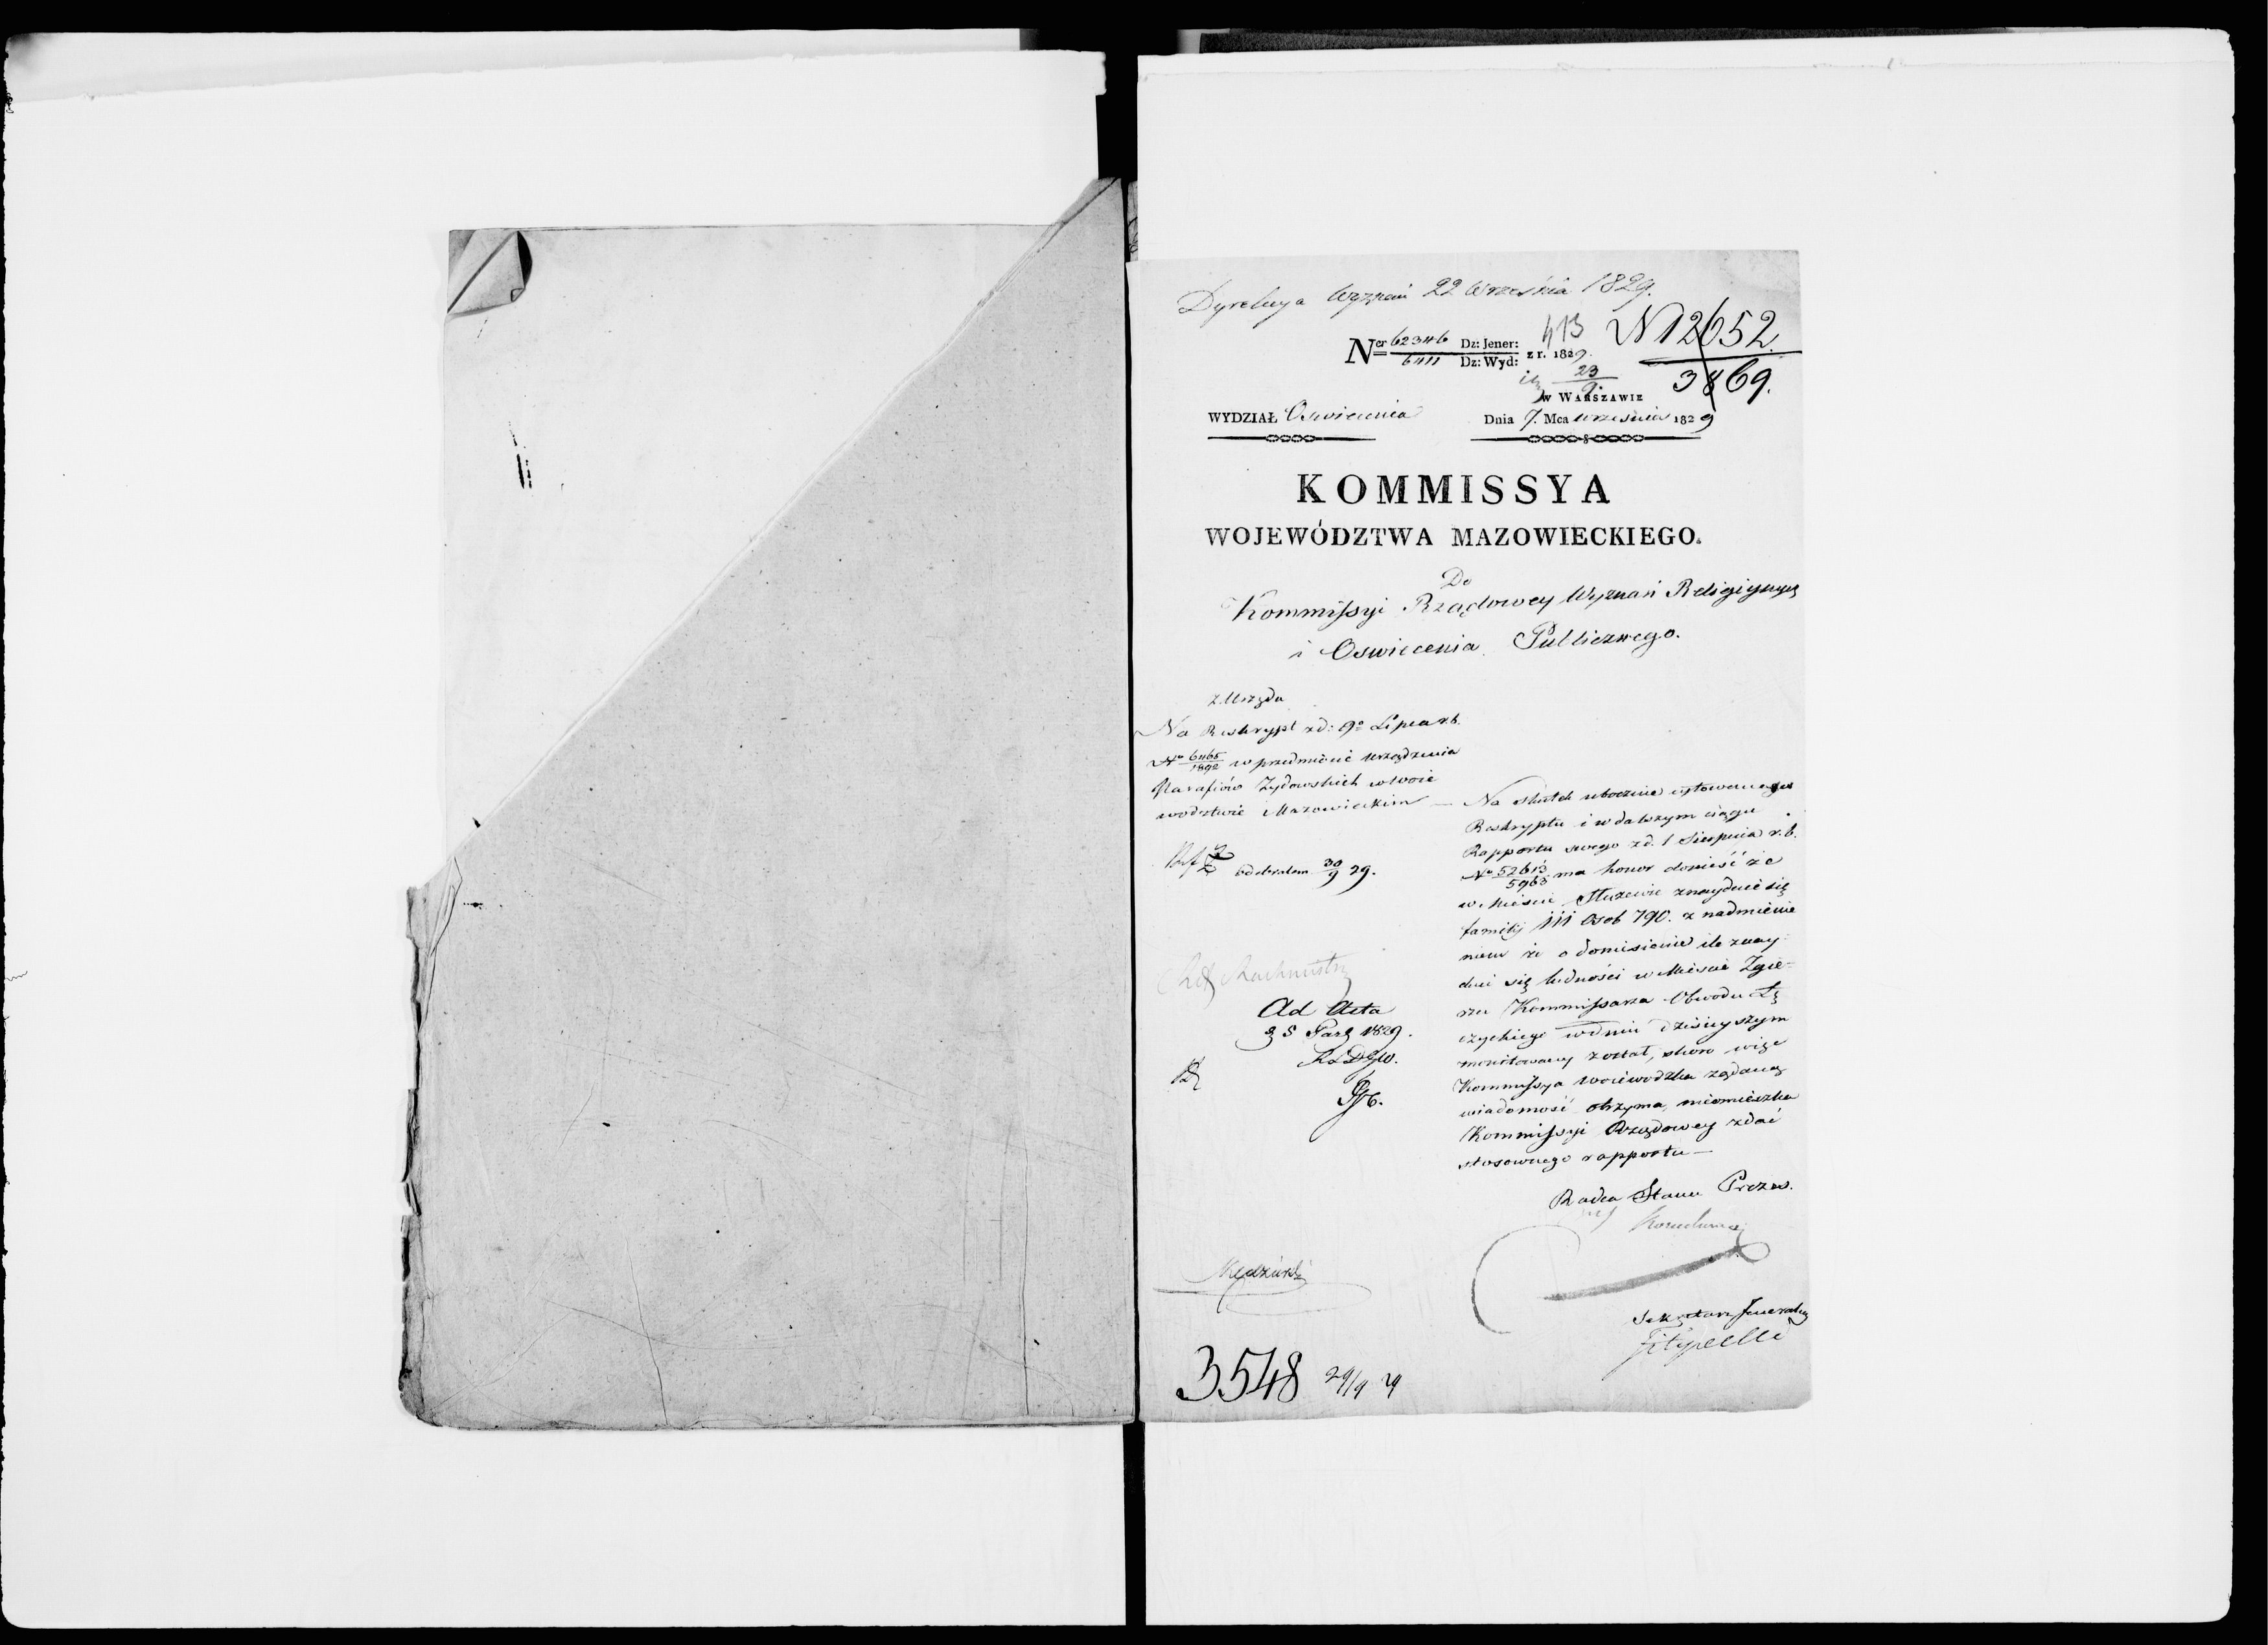 Dyrekcya Wyznań 22 Września 1829.
413
N 12652.
3869.
Ner 62346 Dz: Jener:
6411 Dz: Wyd: z r. 1829.
23
9
w WARSZAWIE
WYDZIAŁ Oswiecenia
Dnia 7. Mca września 1829
KOMMISSYA
WOJEWÓDZTWA MAZOWIECKIEGO.
Do
Kommissyi Rządowey Wyznań Religiynych
i Oswiecenia Publicznego.
z Urzędu
Na Reskrypt z d: 9o Lipca r.b.
No 6465/1892 w przedmiocie urządzenia
Parafiów Zydowskich w Woie
wodztwie Mazowieckim —
odebrałem 30/9 29.
Na skutek ubocznie cytowanego
Reskryptu i w dalszym ciągu
Rapportu swego z d. 1 Sierpnia r.b.
No 52613/5963 ma honor donieść że
w Mieście Służewie znayduie się
familij 111 Osob 790. z nadmienie
niem że o doniesienie ile znay
duie się ludności w Mieście Zgie-
rzu Kommissarza Obwodu Łę
czyckiego w dniu dzisieyszym
monitowany został, skoro więc
Kommissya Woiewodzka żądaną
wiadomość otrzyma, nieomieszka
Kommissyi Rządowey zdać
stosownego rapportu —
Ad Acta
1829.
Radca Stanu Prezes.
Sekretarz Jeneralny
Filipecki
3548 29/9 29